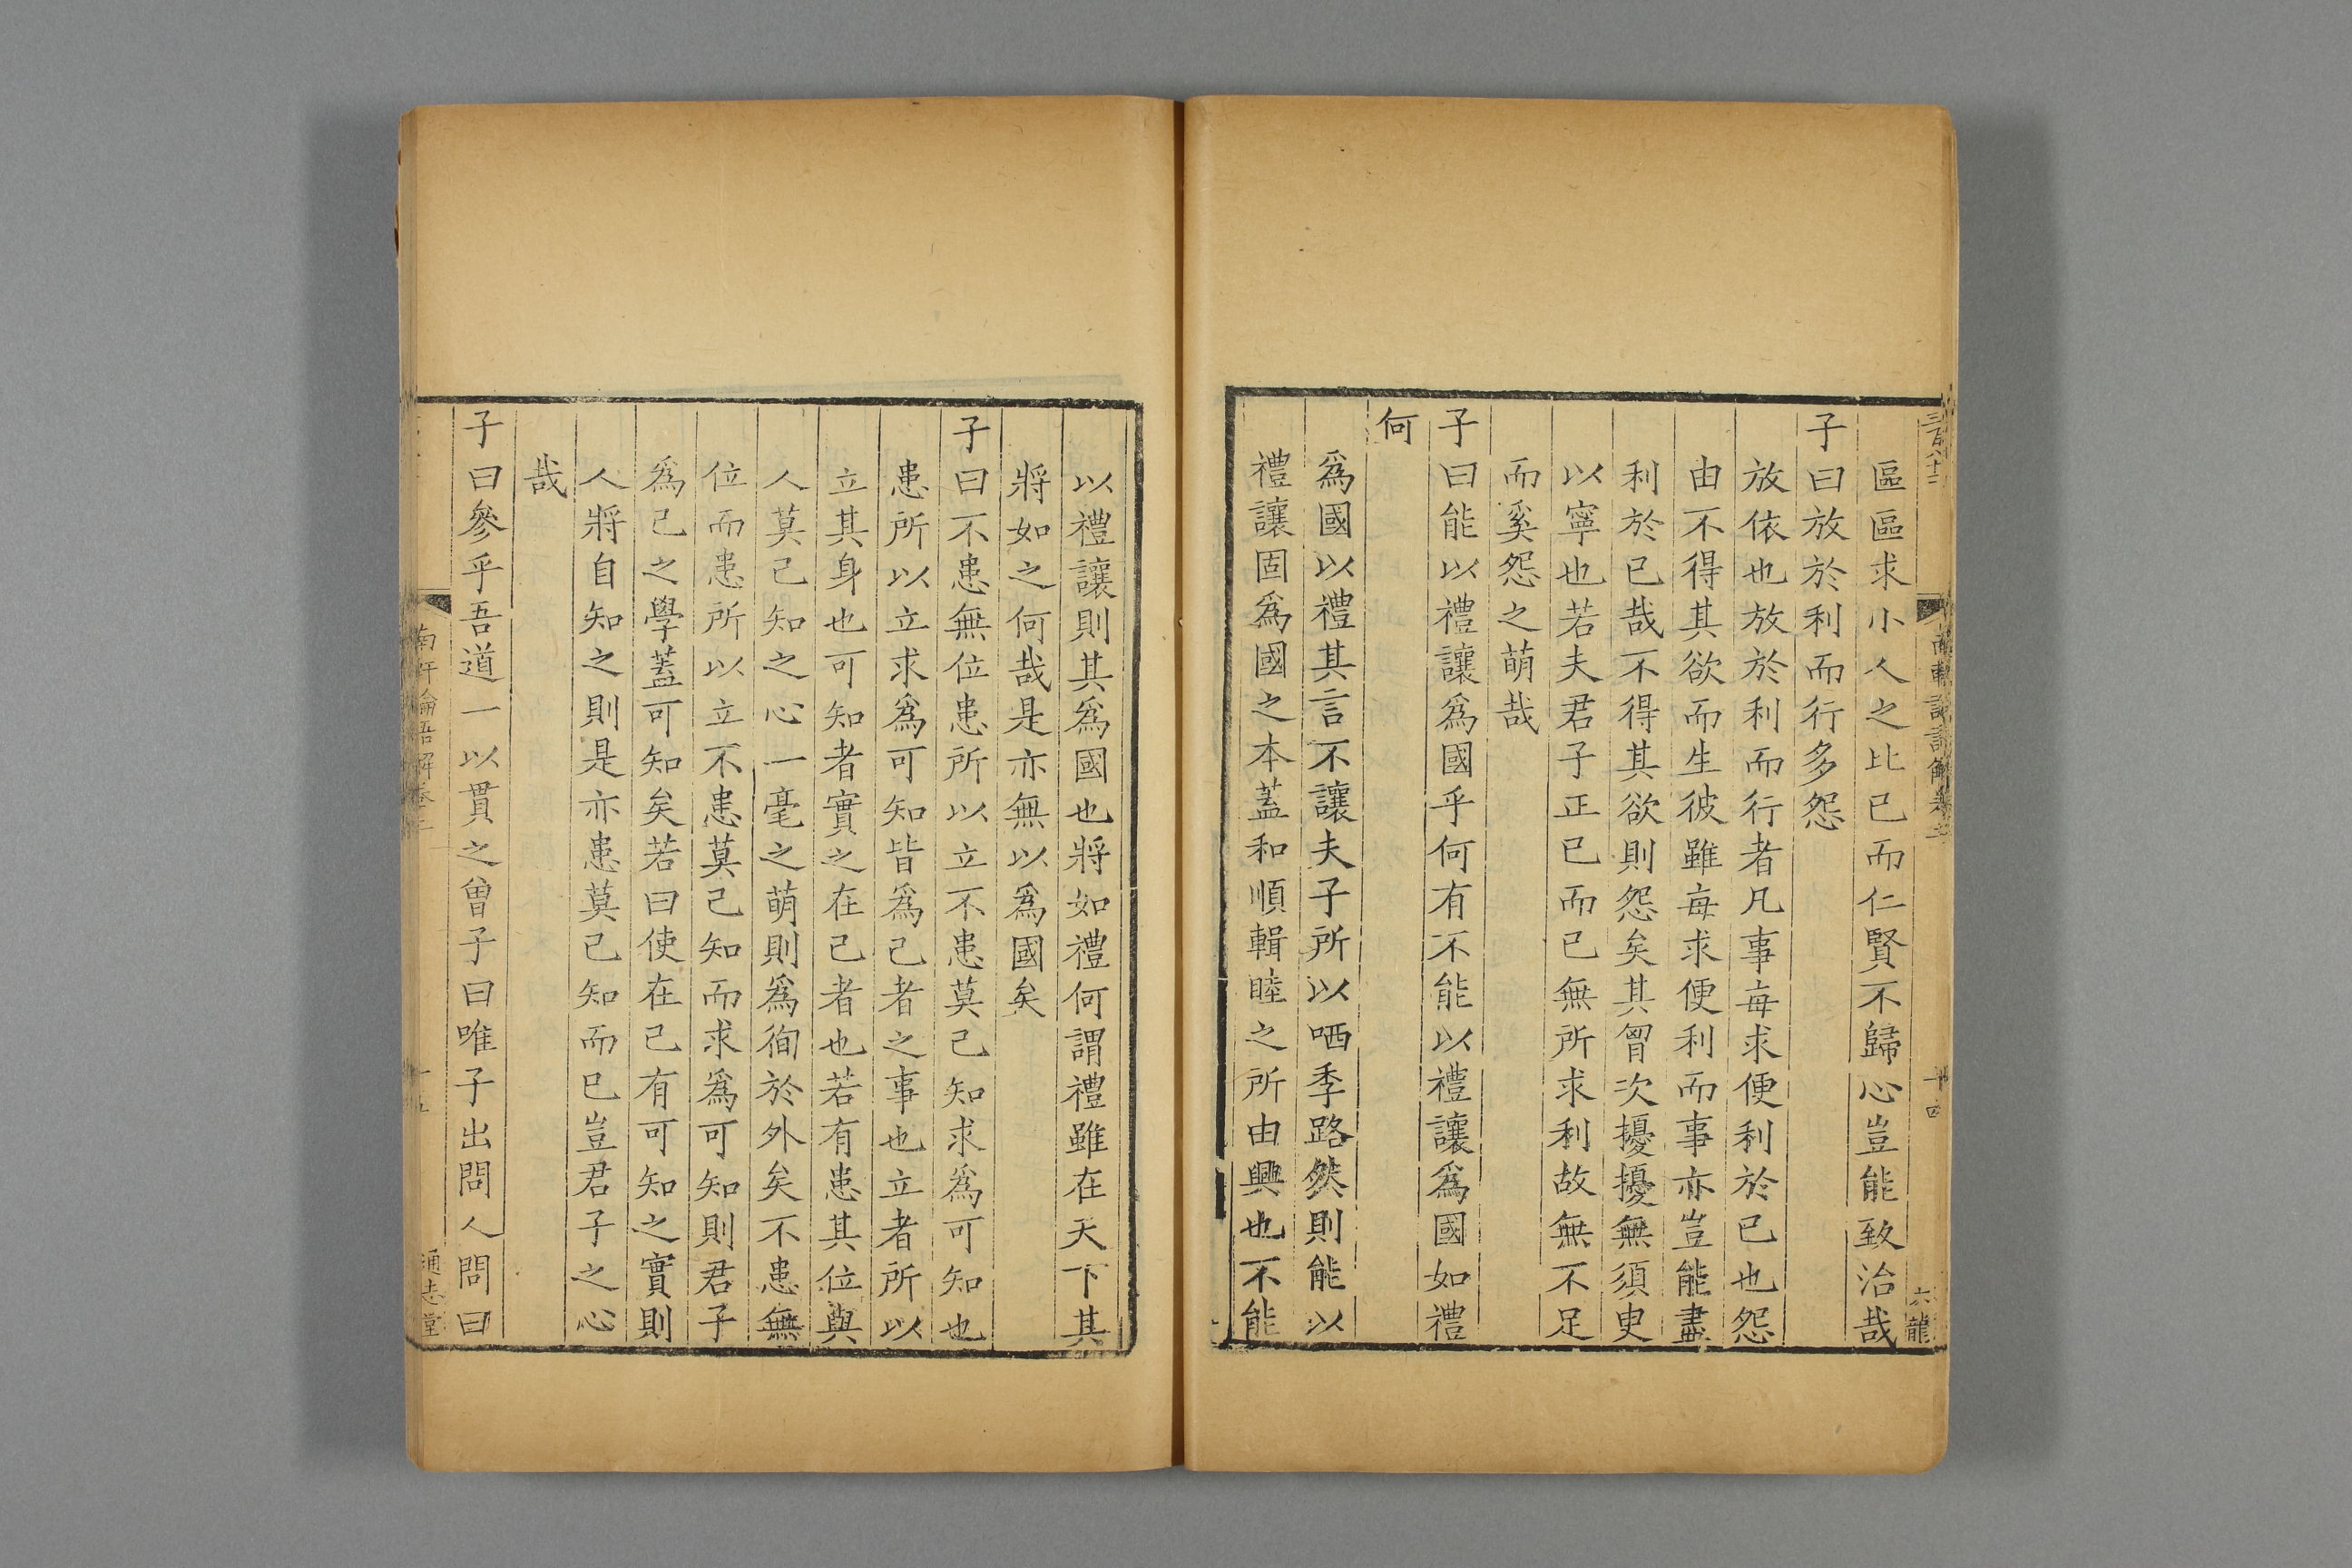 三百八十三
南軒論語解卷二
十四
六龍
區區求小人之比已而仁賢不歸心豈能致治哉
子曰放於利而行多怨
放依也放於利而行者凡事每求便利於已也怨
由不得其欲而生彼雖每求便利而事亦豈能盡
利於已哉不得其欲則怨矣其胷次擾擾無須臾
以寧也若夫君子正已而已無所求利故無不足
而奚怨之萌哉
子曰能以禮讓爲國乎何有不能以禮讓爲國如禮
何
爲國以禮其言不讓夫子所以哂季路然則能以
禮讓固爲國之本蓋和順輯睦之所由興也不能
以禮讓則其爲國也將如禮何謂禮雖在天下其
將如之何哉是亦無以爲國矣
子曰不患無位患所以立不患莫己知求爲可知也
患所以立求爲可知皆爲己者之事也立者所以
立其身也可知者實之在己者也若有患其位與
人莫己知之心一毫之萌則爲徇於外矣不患無
位而患所以立不患莫己知而求爲可知則君子
爲己之學蓋可知矣若曰使在己有可知之實則
人將自知之則是亦患莫己知而已豈君子之心
哉
子曰參乎吾道一以貫之曾子曰唯子出問人問曰
南軒論語解卷二
十五
通志堂